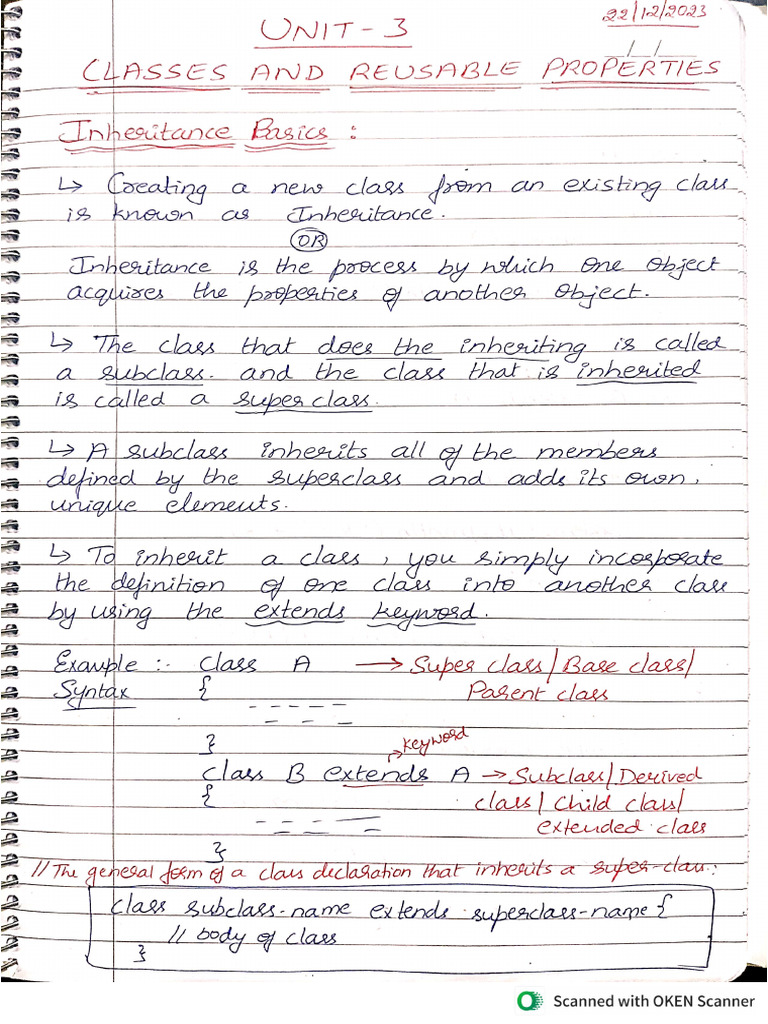 22/12/2023
UNIT-3
CLASSES AND REUSABLE PROPERTIES
Inheritance Basics :
↳ Creating a new class from an existing class
is known as Inheritance.
OR
Inheritance is the process by which one object
acquires the properties of another object.
↳ The class that does the inheriting is called
a subclass. and the class that is inherited
is called a superclass.
↳ A subclass inherits all of the members
defined by the superclass and adds its own,
unique elements.
↳ To inherit a class, you simply incorporate
the definition of one class into another class
by using the extends keyword.
Example :- class A → Super class/Base class/
Syntax { Parent class
}
keyword
class B extends A → Subclass/Derived
{ class/Child class/
extended class
}
//The general form of a class declaration that inherits a super-class:
class subclass-name extends superclass-name {
// body of class
}
Scanned with OKEN Scanner